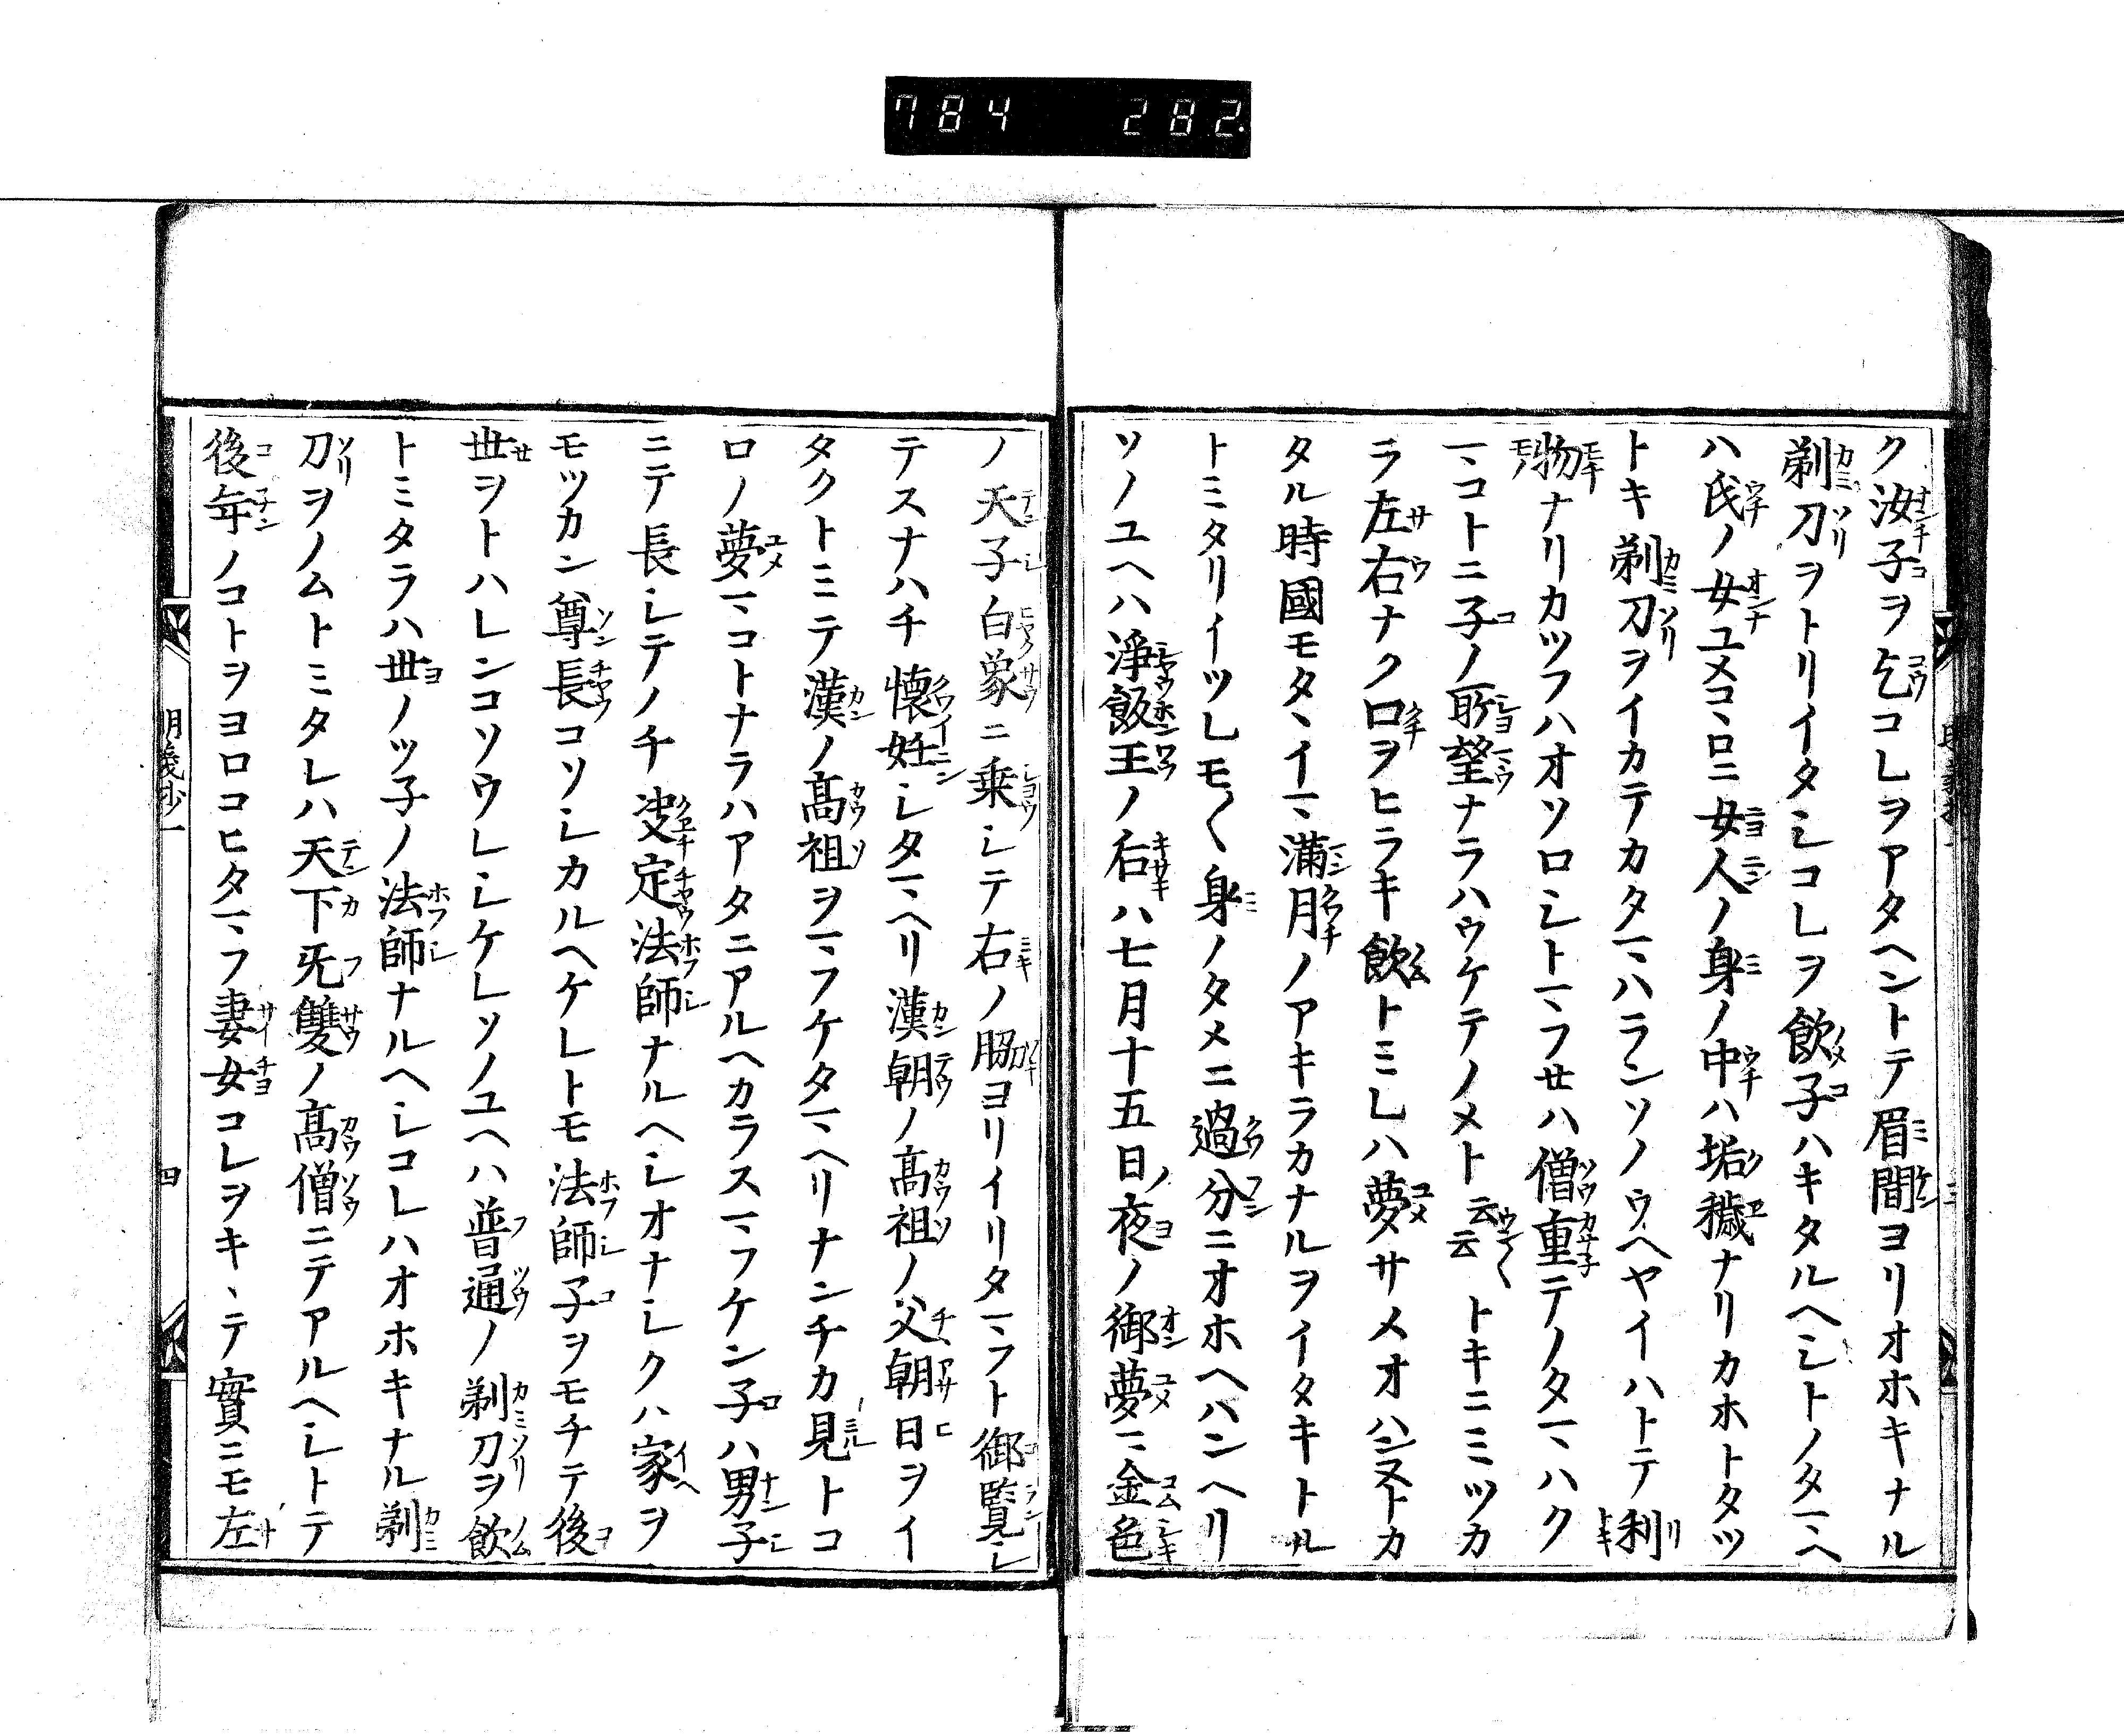 784 282
ク汝子ヲ乞コレヲアタヘントテ眉間ヨリオホキナル
剃刀ヲトリイタシコレヲ飲子ハキタルヘシトノタマヘ
ハ氏ノ女ユメコヽロニ女人ノ身ノ中ハ垢穢ナリカホトタツ
トキ剃刀ヲイカテカタマハランソノウヘヤイハトテ利
物ナリカツフハオソロシトマフサハ僧重テノタマハク
マコトニ子ノ所望ナラハウケテノメト云云トキニミツカ
ラ左右ナク口ヲヒラキ飲トミレハ夢サメオハンヌトカ
タル時國モタヽイマ満月ノアキラカナルヲイタキトル
トミタリイツレモ〱身ノタメニ過分ニオホヘハンヘリ
ソノユヘハ淨飯王ノ后ハ七月十五日ノ夜ノ御夢ニ金色
ノ天子白象ニ乗シテ右ノ脇ヨリイリタマフト御覧シ
テスナハチ懐妊シタマヘリ漢朝ノ髙祖ノ父朝日ヲイ
タクトミテ漢ノ髙祖ヲマフケタマヘリナンチカ見トコ
ロノ夢マコトナラハアタニアルヘカラスマフケン子ハ男子
ニテ長シテノチ决定法師ナルヘシオナシクハ家ヲ
モツカン尊長コソシカルヘケレトモ法師子ヲモチテ後
世ヲトハレンコソウレシケレソノユヘハ普通ノ剃刀ヲ飲
トミタラハ世ノツ子ノ法師ナルヘシコレハオホキナル剃
刀ヲノムトミタレハ天下旡雙ノ髙僧ニテアルヘシトテ
後年ノコトヲヨロコヒタマフ妻女コレヲキヽテ實ニモ左
明義抄一
四